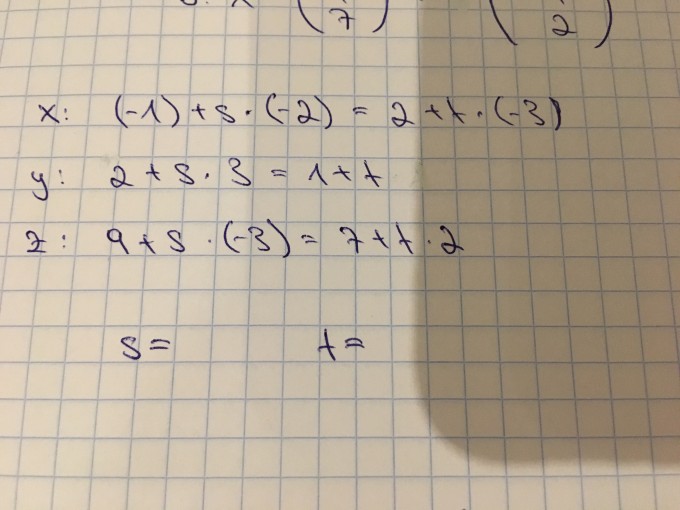 7 2
x: (-1) + s · (-2) = 2 + t · (-3)
y: 2 + s · 3 = 1 + t
z: 9 + s · (-3) = 7 + t · 2
s = t =